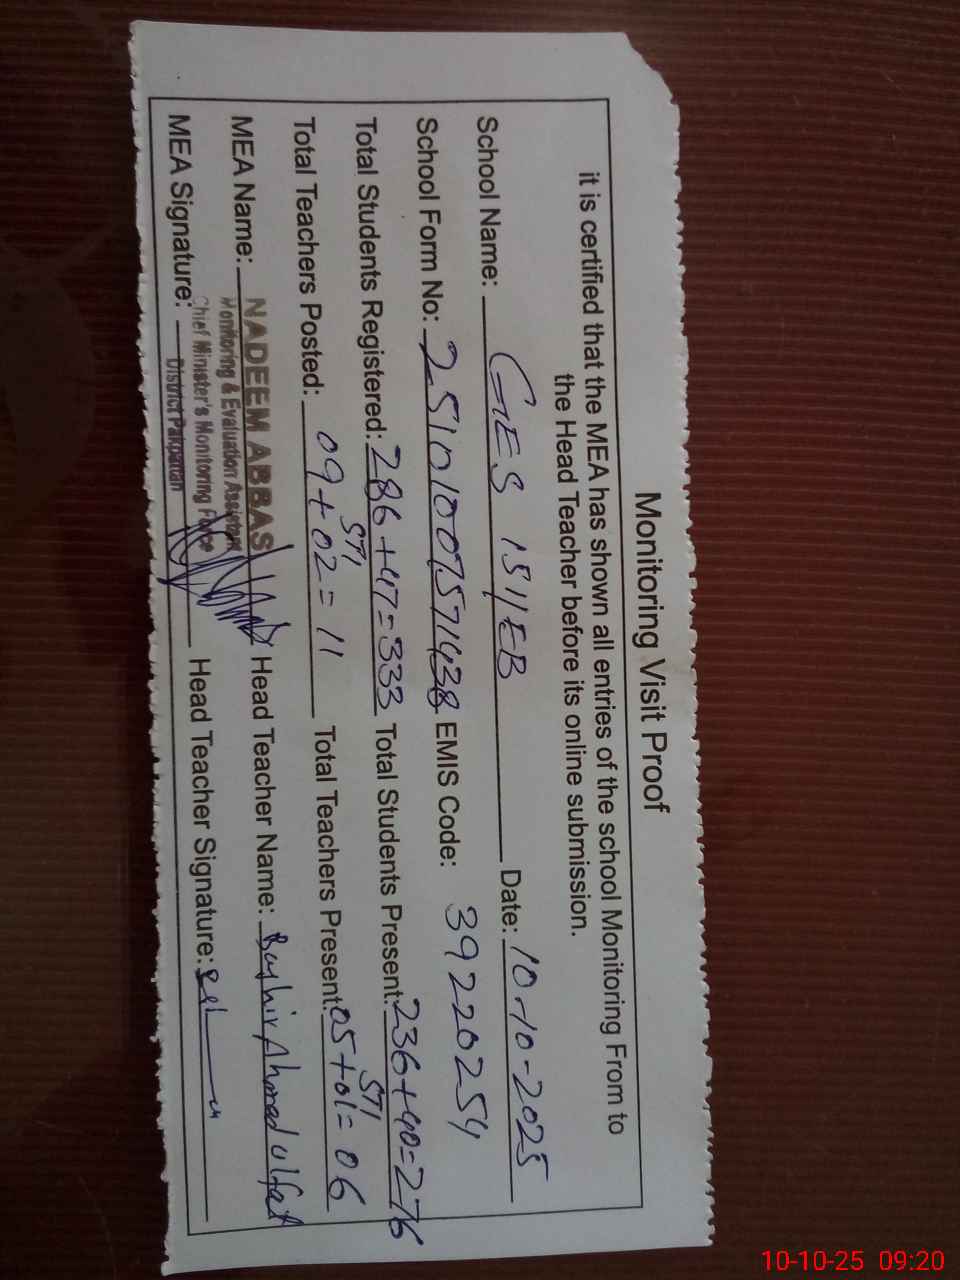 Monitoring Visit Proof
it is certified that the MEA has shown all entries of the school Monitoring From to
the Head Teacher before its online submission.
School Name: GES 154/EB Date: 10-10-2025
School Form No: 2510100757438 EMIS Code: 39220254
Total Students Registered: 286+47=333 Total Students Present: 236+40=276
STI STI
Total Teachers Posted: 09+02=11 Total Teachers Present: 05+01=06
MEA Name: NADEEM ABBAS Head Teacher Name: Bashir Ahmad ulfat
Monitoring & Evaluation Assistant
Chief Minister's Monitoring Force
MEA Signature: District Pakpattan Head Teacher Signature:
10-10-25 09:20